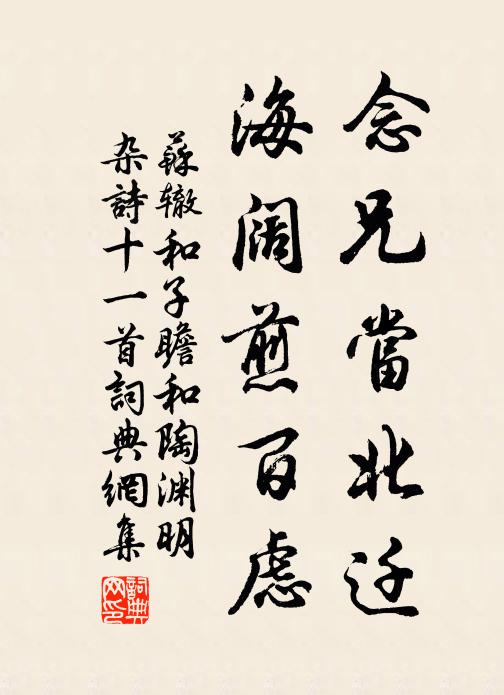 念兄當北迁
海阔煎百慮
蘇辙和子瞻和陶渊明
杂詩十一首詞典網集
詞典网印